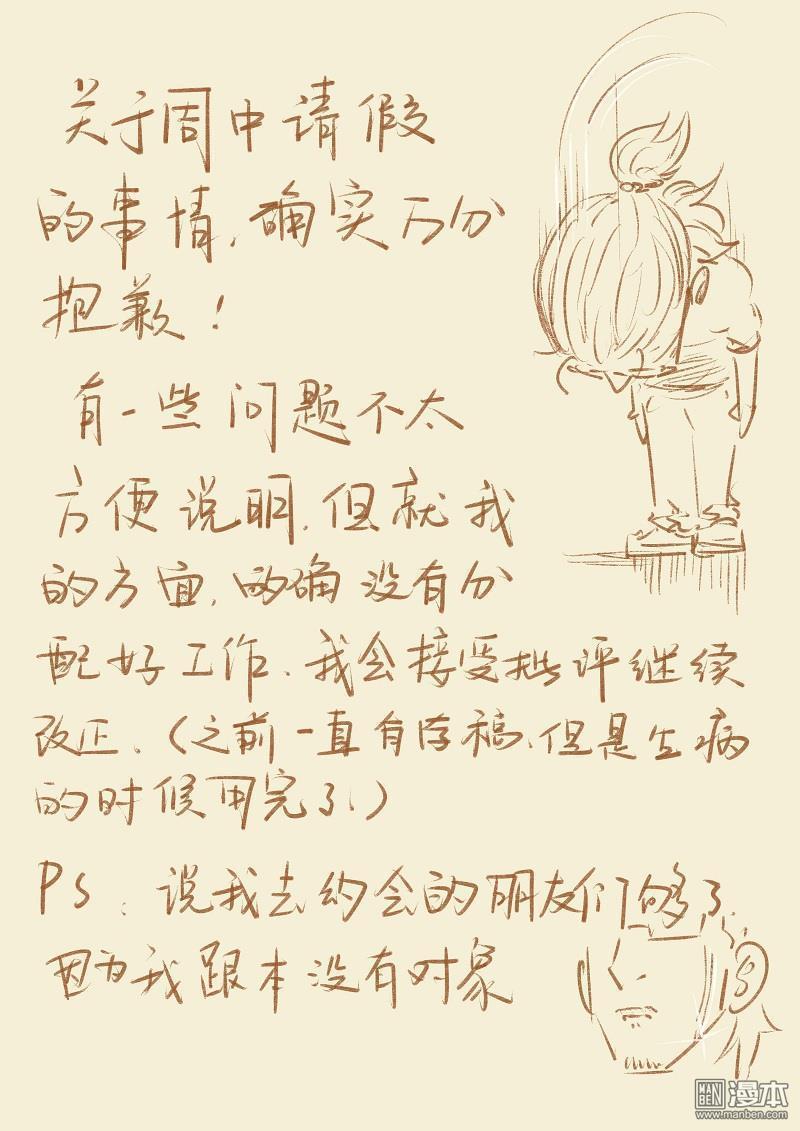 关于周中请假
的事情,确实万分
抱歉!
有一些问题不太
方便说明,但就我
的方面,的确没有分
配好工作、我会接受批评继续
改正.(之前一直有存稿,但是生病
的时候用完了、)
PS:说我去约会的朋友们够了,
因为我跟本没有对象
MANBEN 漫本
www.manben.com